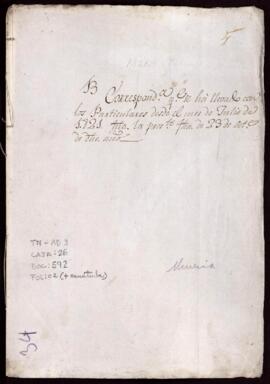 5
B Correspond.ª q.e se há llevado con
los Particulares desde el mes de Julio de
1821 hta. la prex.te fha. de 23 de Oct.e
de dho. año
TN-AD 3
CAJA: 26
DOC: 592
FOLIO 2 (+ carátula)
34